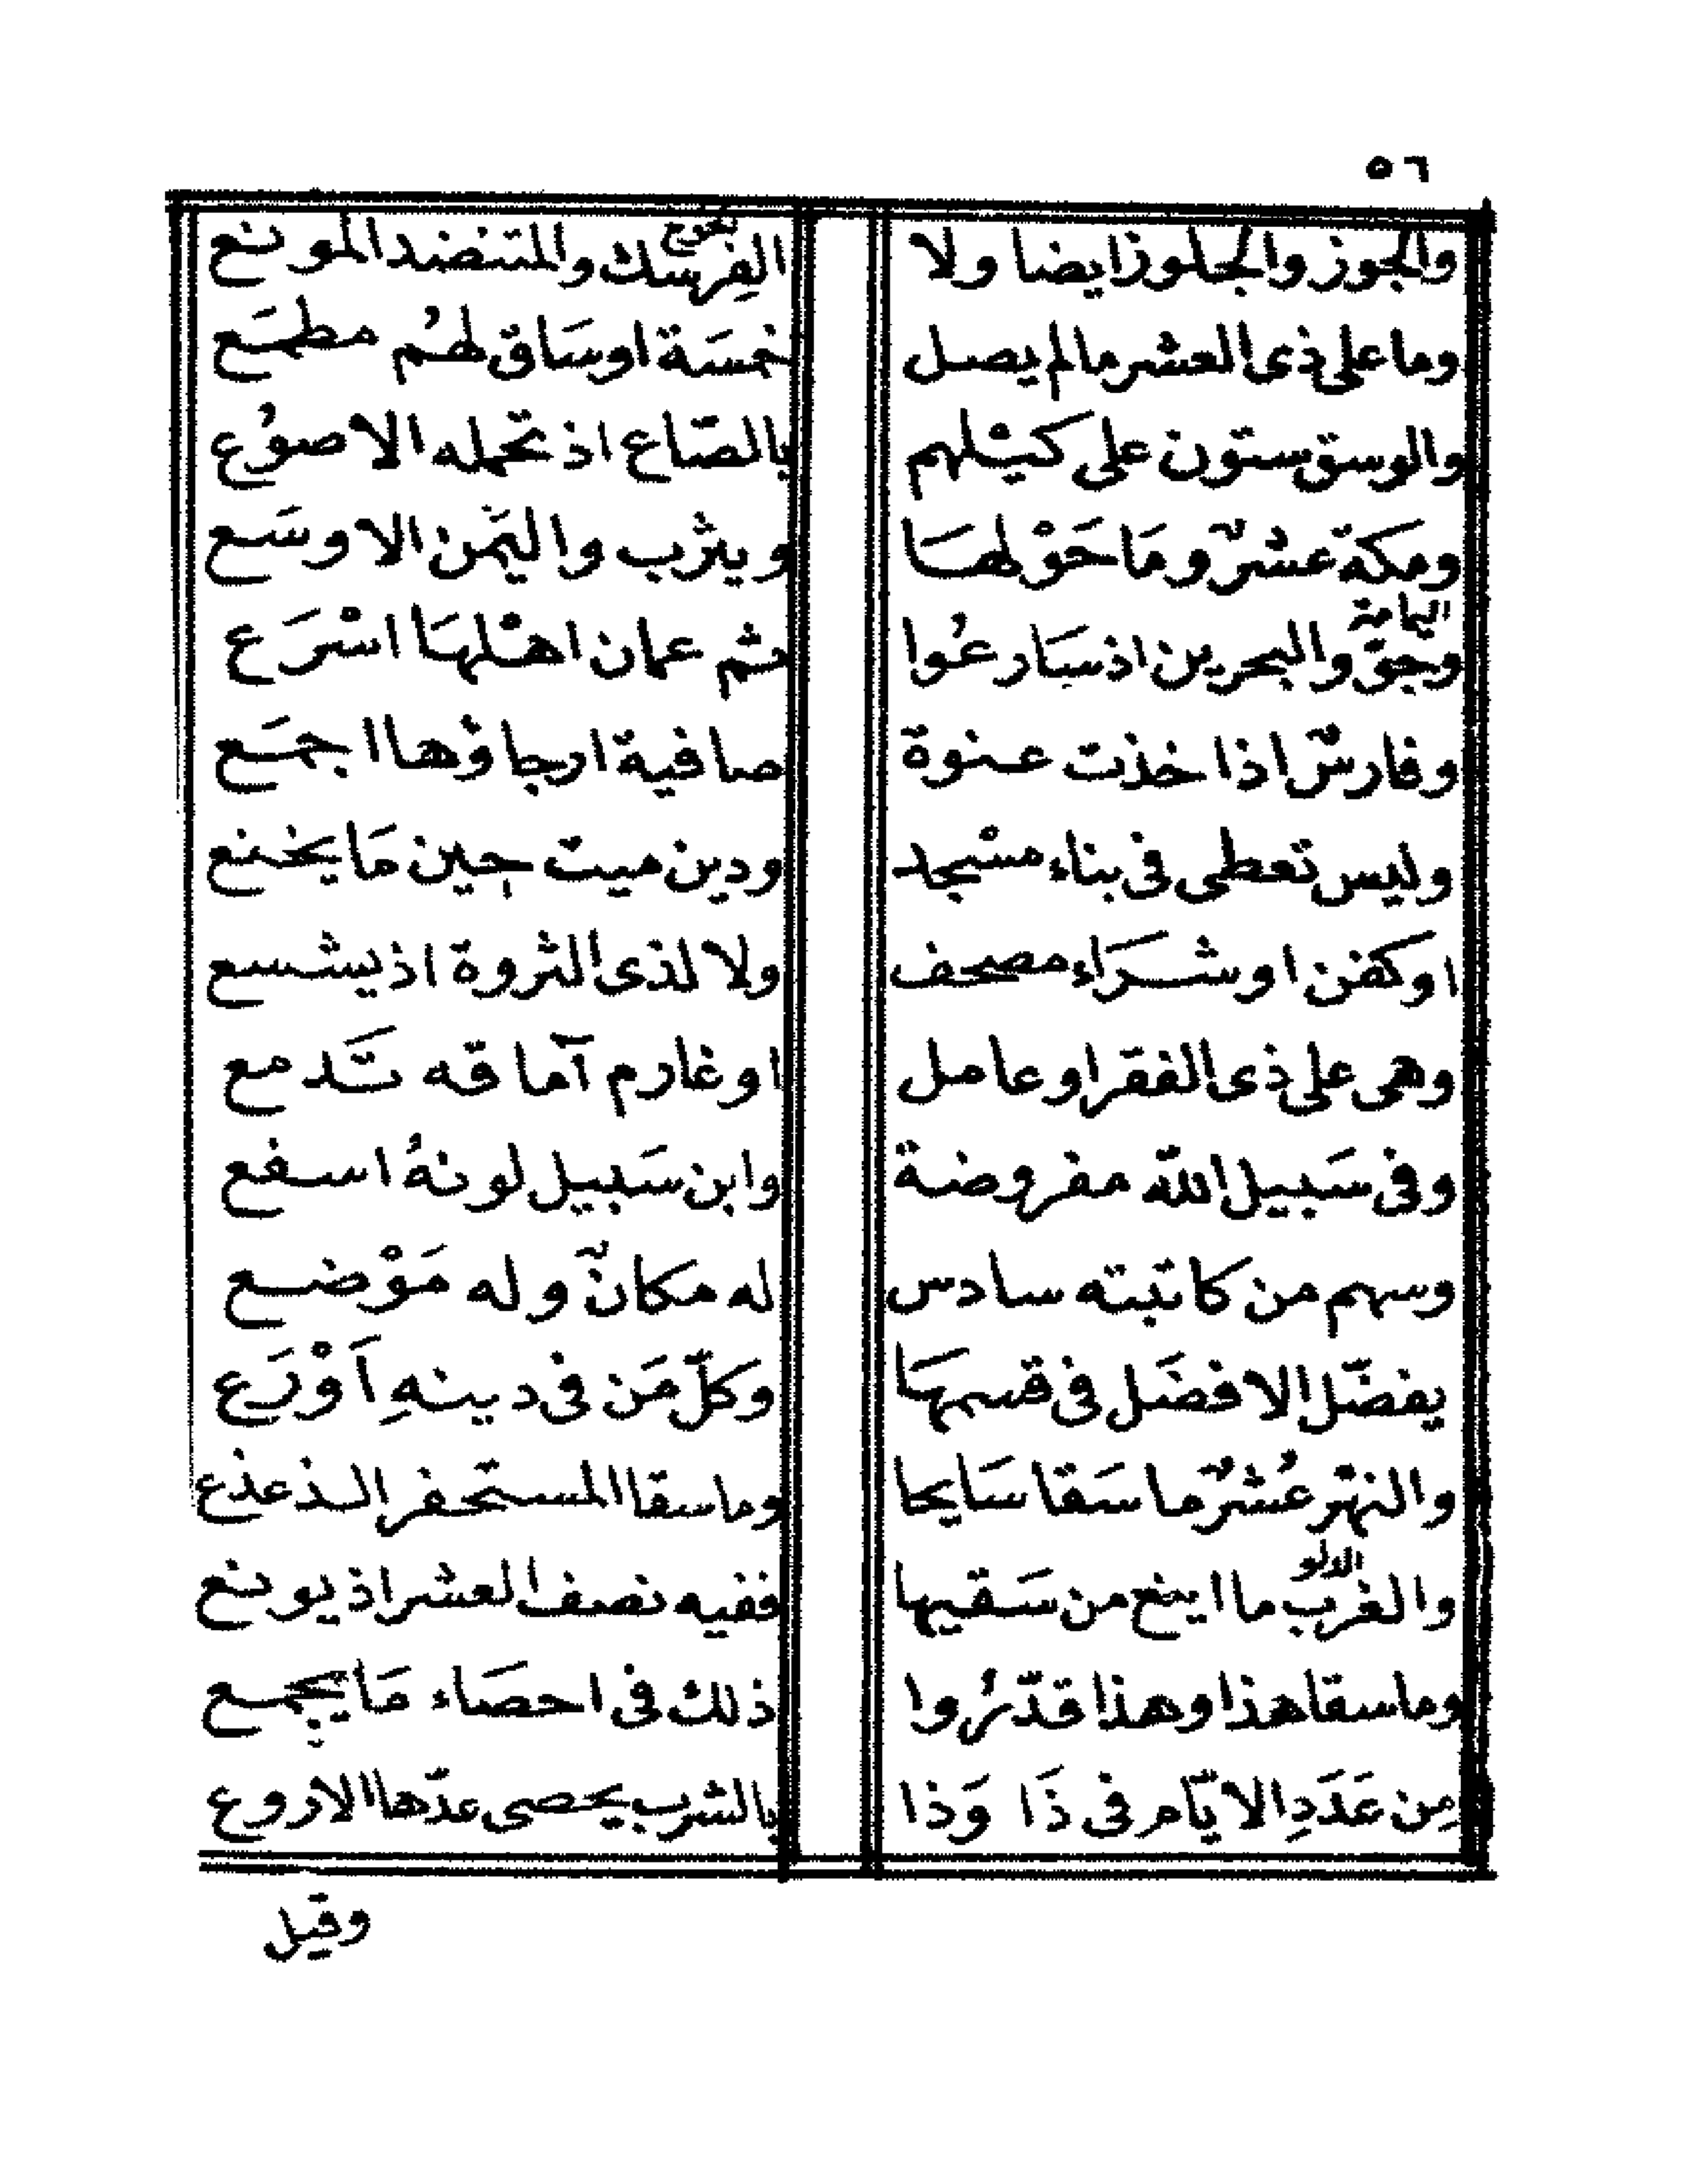 ٥٦
والجوز والجلوز ايضا ولا الفِرسك والمتنضد المونع
وما على ذى العشر مالم يصل خمسَة اوسَاق لهُم مطمَع
والوسق ستون على كيْلهم بالصّاع اذ تحمله الاصوُع
ومكة عشرٌ ومَا حَوْلهَا ويثرب واليَمن الاوسَع
اليمامة
وجوّ والبحرين اذ سَارعُوا ثم عمان اهْلهَا اسْرَع
وفارسٌ اذا خذت عنوة صافية ارجاؤها اجمَع
وليس تعطى فى بناء مسْجد ودين ميت حين مَا يخنع
او كفن او شرَاء مصحف ولا لذى الثروة اذ يشسع
وهى على ذى الفقر او عامل او غارم آماقه تَدمع
وفى سَبيل اللّه مفروضة وابن سَبيل لونهُ اسفع
وسهم من كاتبته سادس له مكانٌ وله مَوْضع
يفضّل الافضَل فى قسمهَا وكلّ مَن فى دينهِ اَوْرَع
والنهْر عُشرٌ ما سَقا سَايحا وما سقا المستحفر الذعذع
الدلو
والغرب ما اينع من سَقيها ففيه نصف العشر اذ يونع
وما سقا هذا وهذا قدّرُوا ذلك فى احصَاء مَا يجمع
مِن عَدَدِ الايّام فى ذَا وَذا بالشرب يحصى عدّها الاروع
وقيل